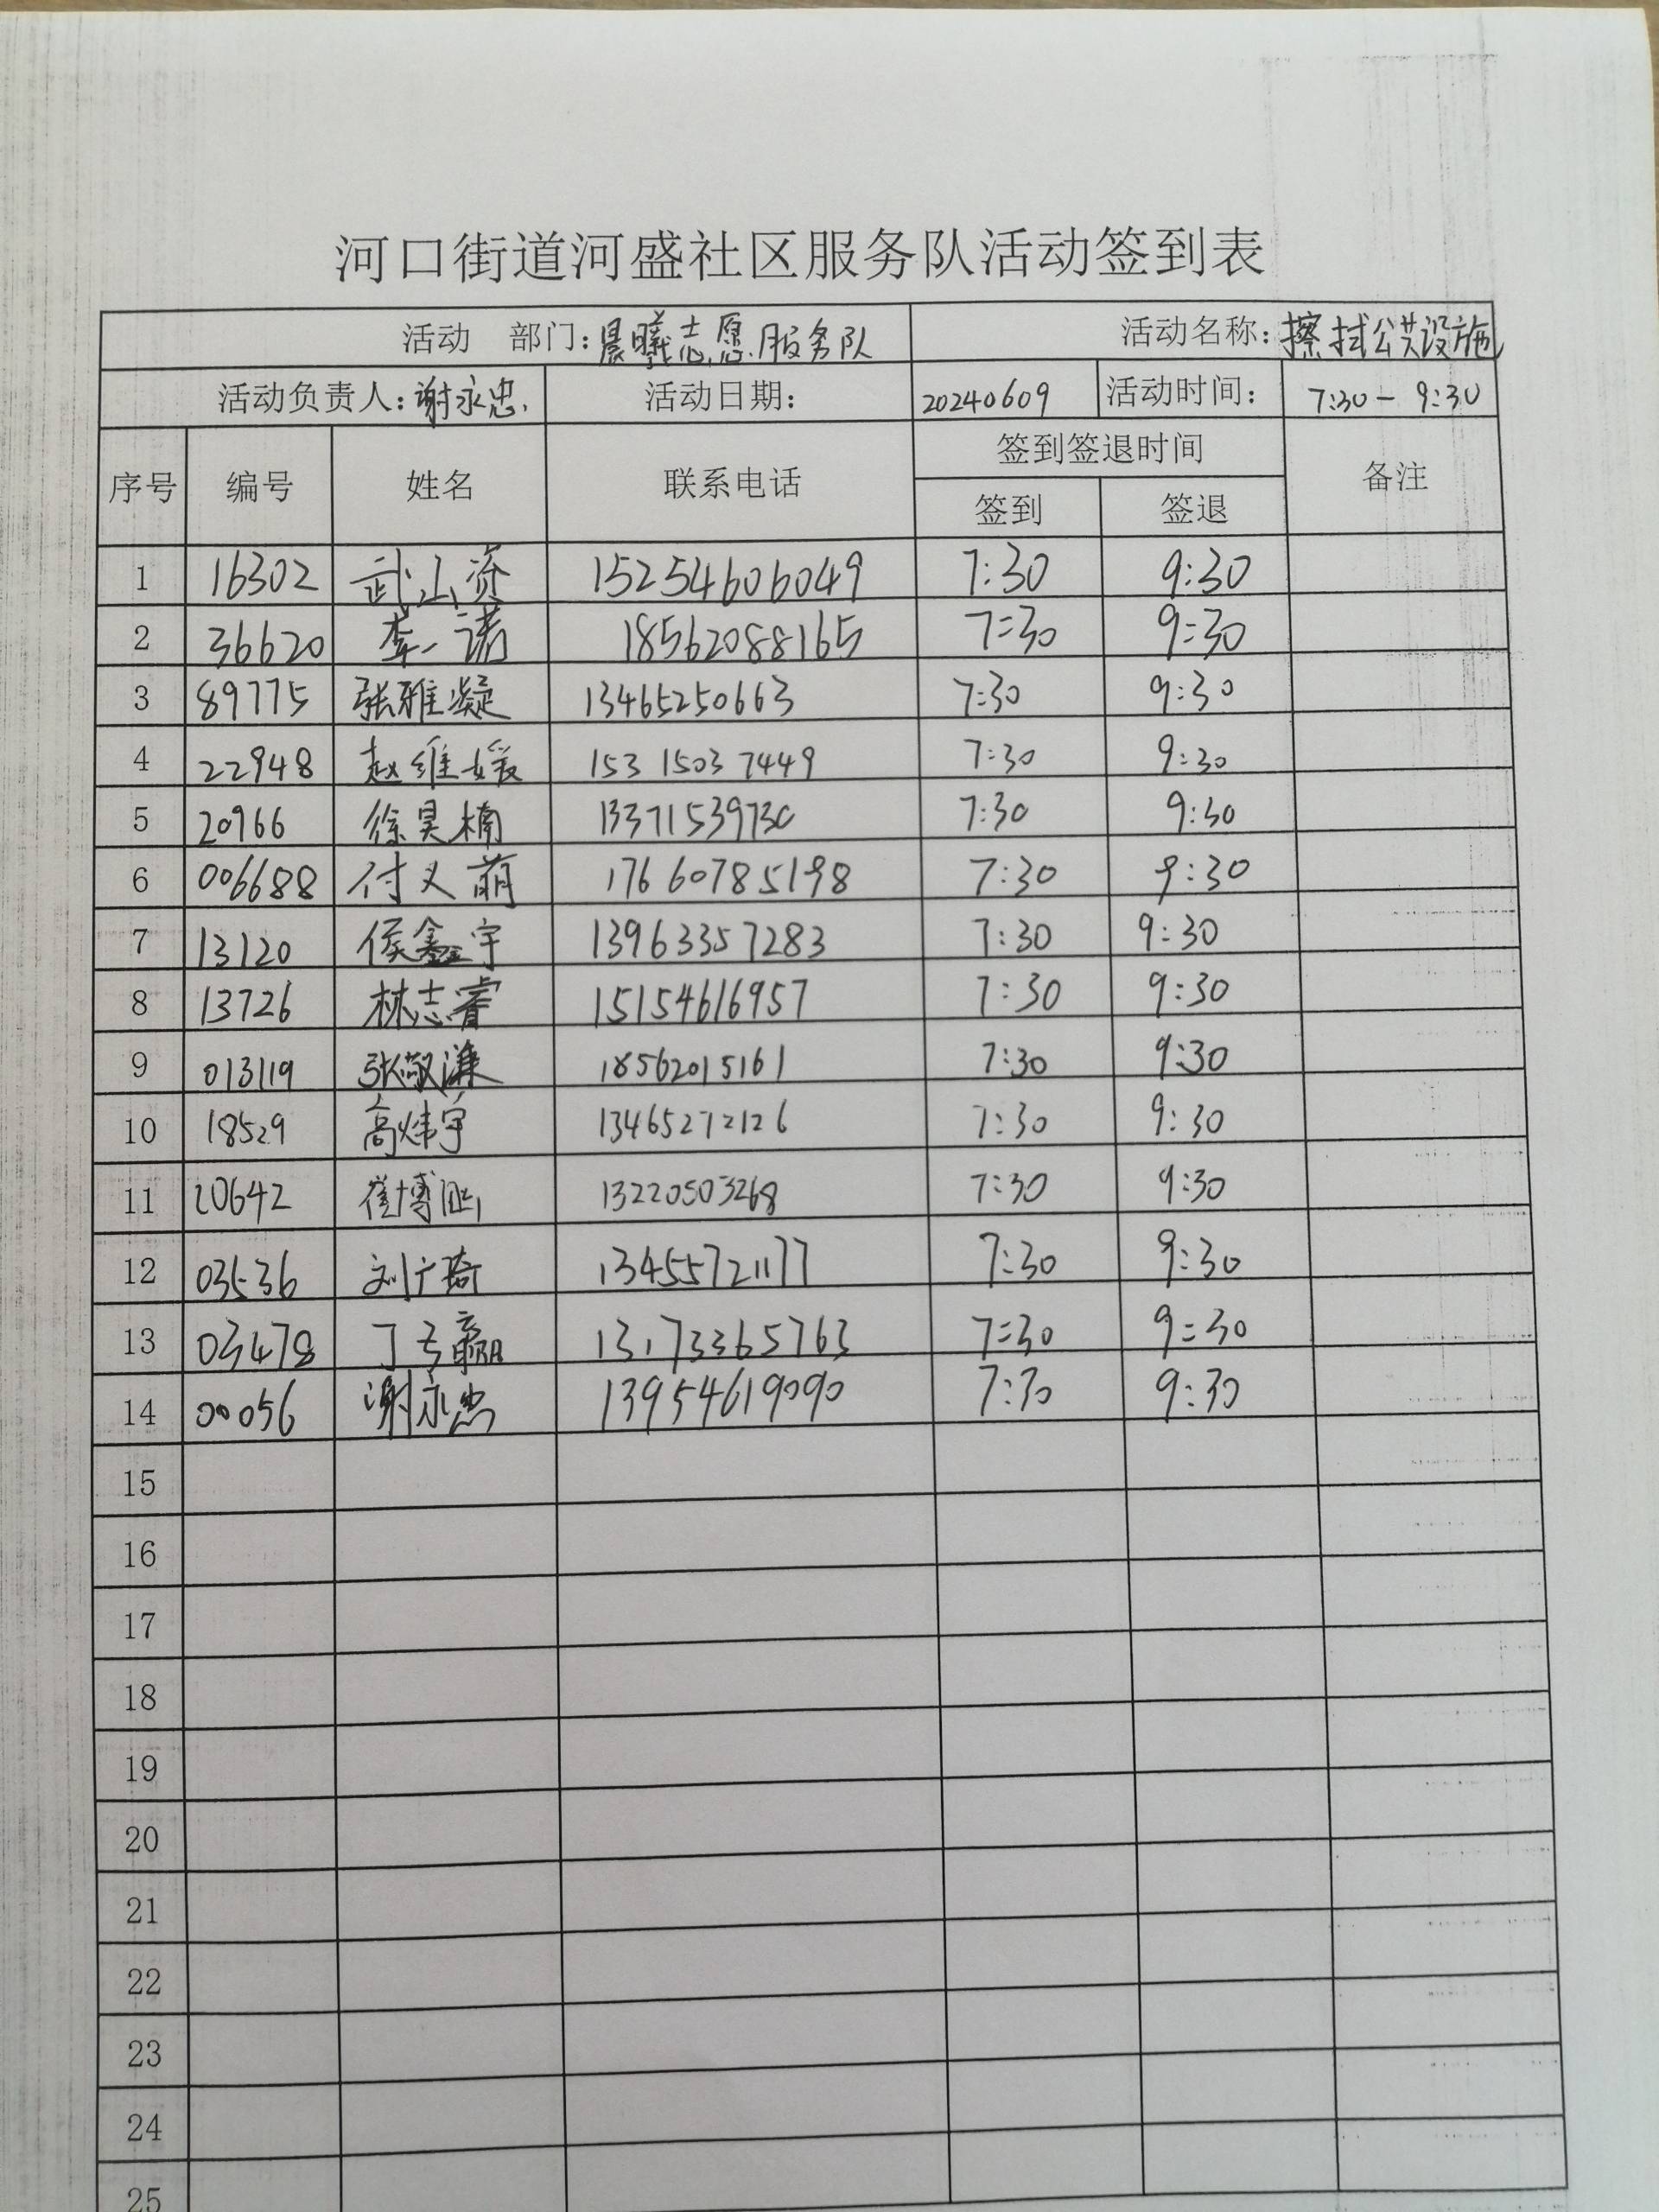 河口街道河盛社区服务队活动签到表
活动 部门：晨曦志愿服务队 活动名称：擦拭公共设施
活动负责人：谢永忠 活动日期： 20240609 活动时间： 7:30-9:30
序号 编号 姓名 联系电话 签到签退时间 备注
签到 签退
1 16302 15254606049 7:30 9:30
2 36620 李一诺 18562088165 7:30 9:30
3 89775 张雅凝 13465250663 7:30 9:30
4 22948 赵维媛 153 1503 7449 7:30 9:30
5 20966 徐昊楠 13371539730 7:30 9:30
6 006688 付义萌 176 60785198 7:30 9:30
7 13120 侯鑫宇 13963357283 7:30 9:30
8 13726 林志睿 15154616957 7:30 9:30
9 013119 张敬谦 18562015161 7:30 9:30
10 18529 高炜宇 13465272126 7:30 9:30
11 20642 崔博 13220503268 7:30 9:30
12 03536 刘广琦 13455721177 7:30 9:30
13 03478 丁 赢 13173365763 7:30 9:30
14 00056 谢永忠 13954619090 7:30 9:30
15
16
17
18
19
20
21
22
23
24
25